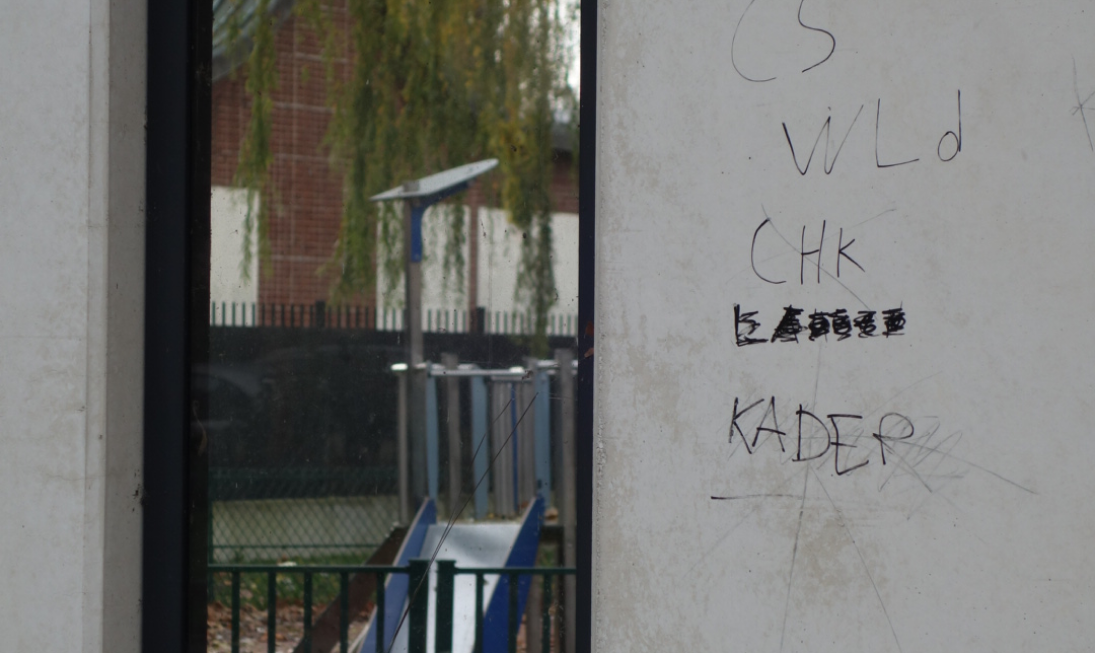 CS
WLd
CHK
KADER